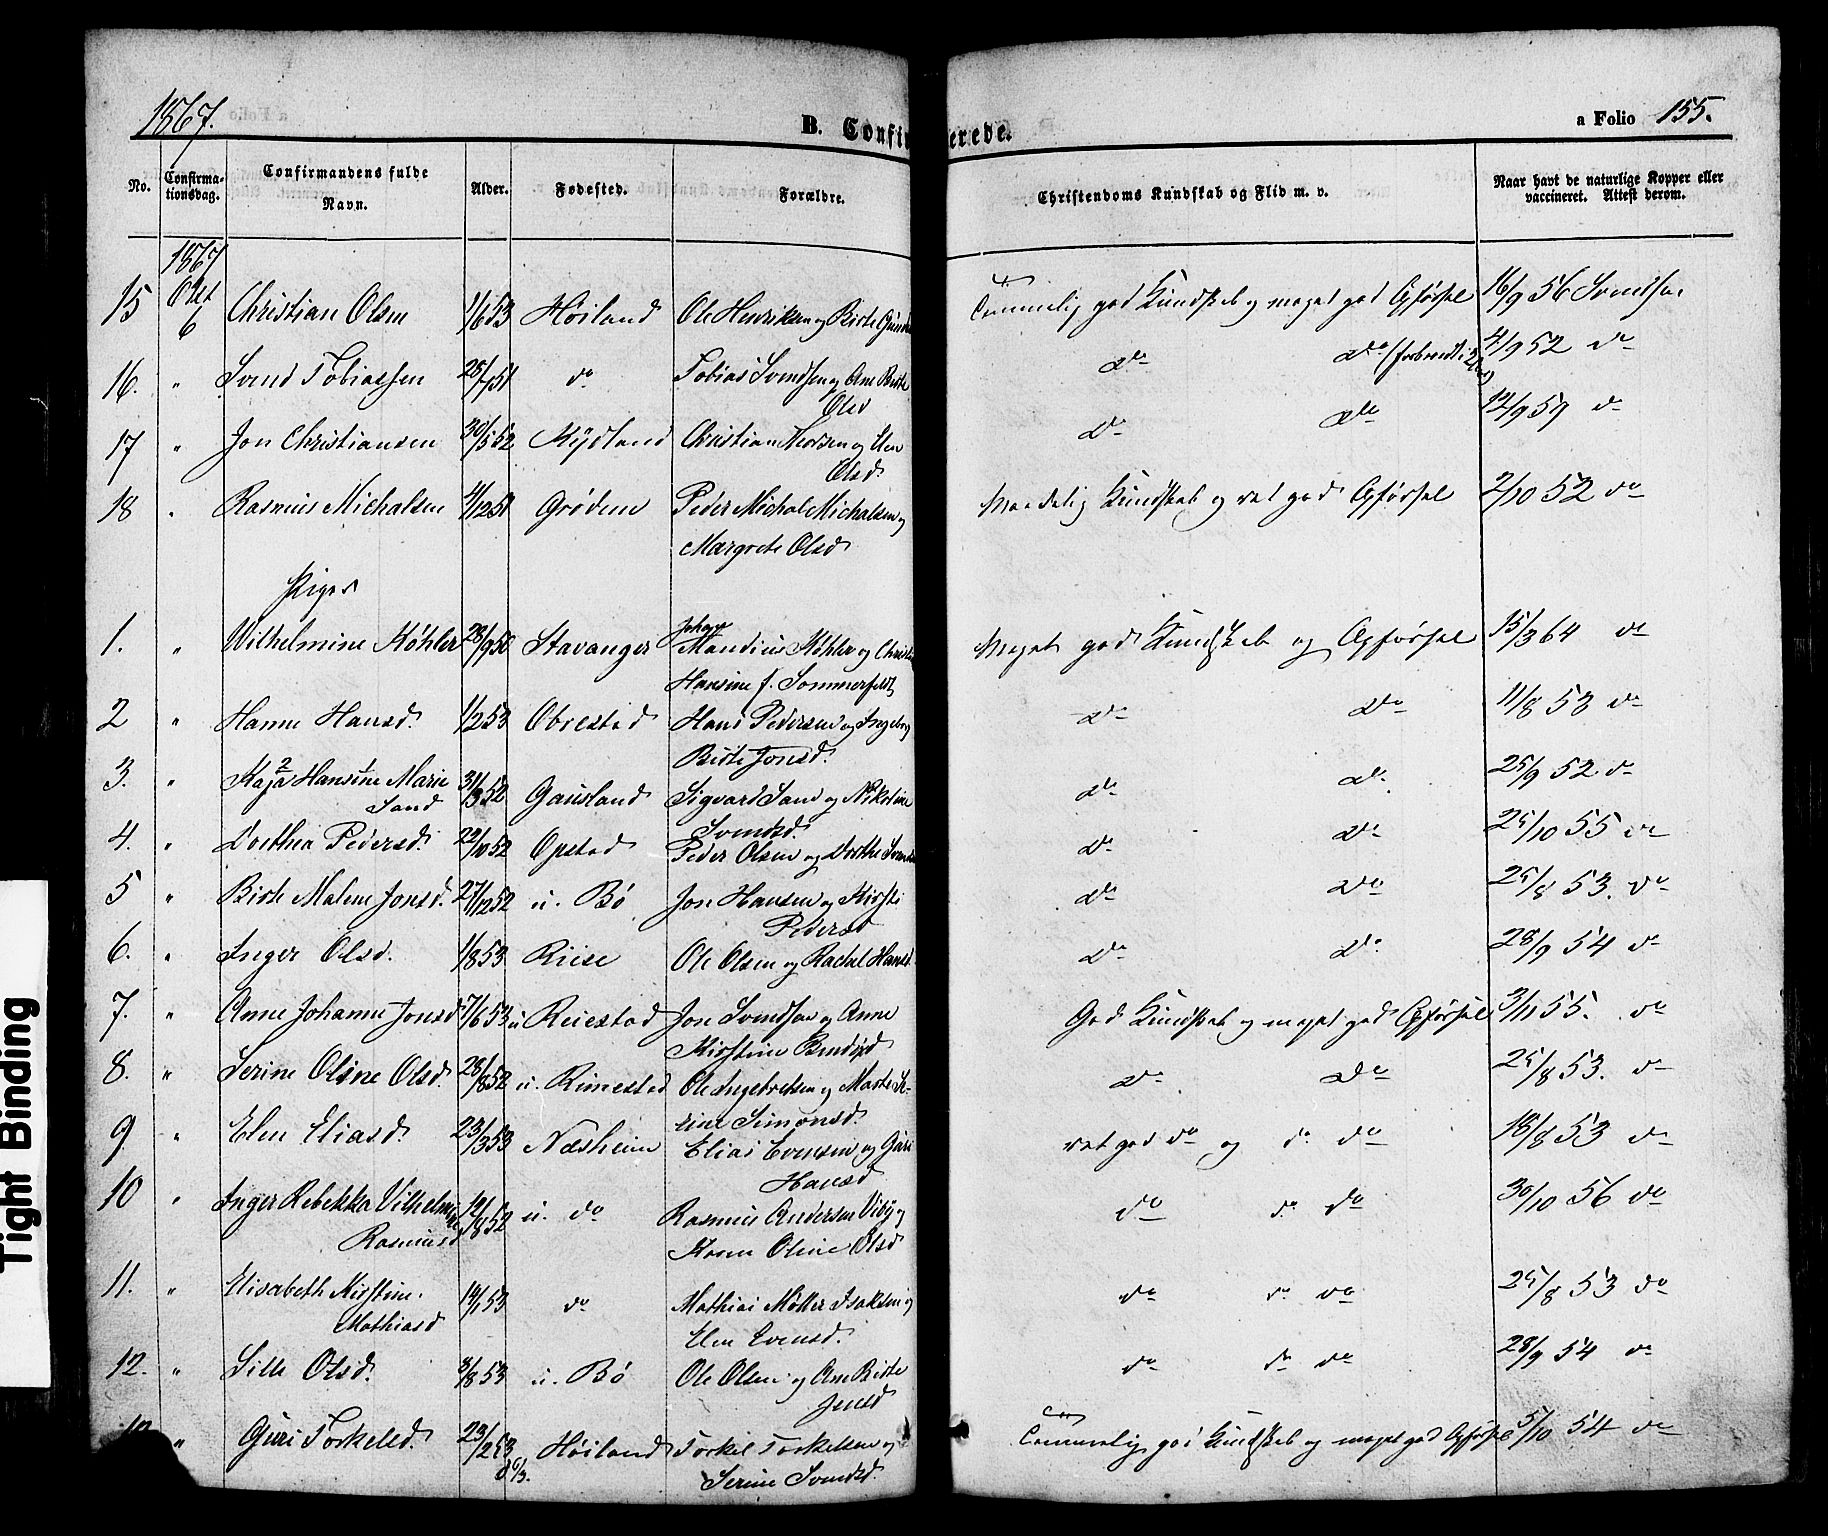 1867.
B. Confirmerede.
a Folio 155.
No.
Confirma-
tionsdag.
Confirmandens fulde
Navn.
Alder.
Fødested.
Forældre.
Christendoms Kundskab og Flid m. v.
Naar havt de naturlige Kopper eller
vaccineret. Attest derom.
1867
15 Okt 6 Christian Olsen 1/6 53 Høiland Ole Henriksen og Birte Temmelig god Kundskab og meget god Opførsel 16/9 56 Svendsen
16. " Svend Tobiassen 28/7 51 do Tobias Svendsen og Ane Birte do do 4/9 52 do
Olsd
17 " Jon Christiansen 30/5 52 Kydland Christian og Elen do do 12/9 59 do
Olsd.
18 " Rasmus Michalsen 4/12 51 Grødem Peder Michal Michalsen og Maadelig Kundskab og ret god Opførsel 2/10 52 do
Margrete Olsd
Piger
1. " Wilhelmine Køhler 28/9 50 Stavanger Johan Mandius Køhler og Meget god Kundskab og Opførsel 15/3 64 do
Hansine f. Sommerfeldt
2 " Hanne Hansd. 1/2 53 Obrestad Hans Pedersen og Ingeborg do do 11/8 53 do
Birte Jonsd.
3. " Kaja 2 Hansine 1 Marie 31/3 52 Gausland Sigvard Sand og Nikoline do do. 25/9 52 do
Sand Svendsd.
4. " Dorthea Pedersd. 22/10 52 Opstad Peder Olsen og Dorthe do do 25/10 55 do
5 " Birte Malene Jonsd. 27/12 52 u. Bø Jon Hansen og Kirsti do do 25/8 53. do
Pedersd
6. " Inger Olsd. 1/8 53 Riise Ole Olsen og Rachel Hansd. do do 28/9 54 do
7. " Anne Johanne Jonsd 7/6 53 u Reiestad Jon Svendsen og Anne God Kundskab og meget god Opførsel 3/11 55. do
Kirstine
8. " Serine Oline Olsd. 28/8 52 u. Rimestad Ole Ingebretsen og Marte Se- do do 25/8 53. do
rine Simonsd.
9. " Elen Eliasd. 23/3 53 Næsheim Elias Evensen og Guri ret god do og do do 18/8 53 do
Hansd
10 " Inger Rebekka Vilhelmine 12/8 52 u. do Rasmus Andersen Viby og do do do 30/10 56 do
Rasmusd Karen Oline Olsd
11. " Elisabeth Kirstine 19/1 53 do Mathias Møller Isaksen og do do do 25/8 53 do
Mathiasd Elen Evensd.
12. " Sille Olsd. 3/8 53 u. Bø Ole Olsen og Ane Birte do do do 28/9 54 do
Jensd
13 " Guri Torkelsd. 23/2 53 Høiland Torkel Torkelsen og Temmelig god Kundskab og meget god Opførsel 5/10 54 do
Serine Svendsd.
Tight Binding